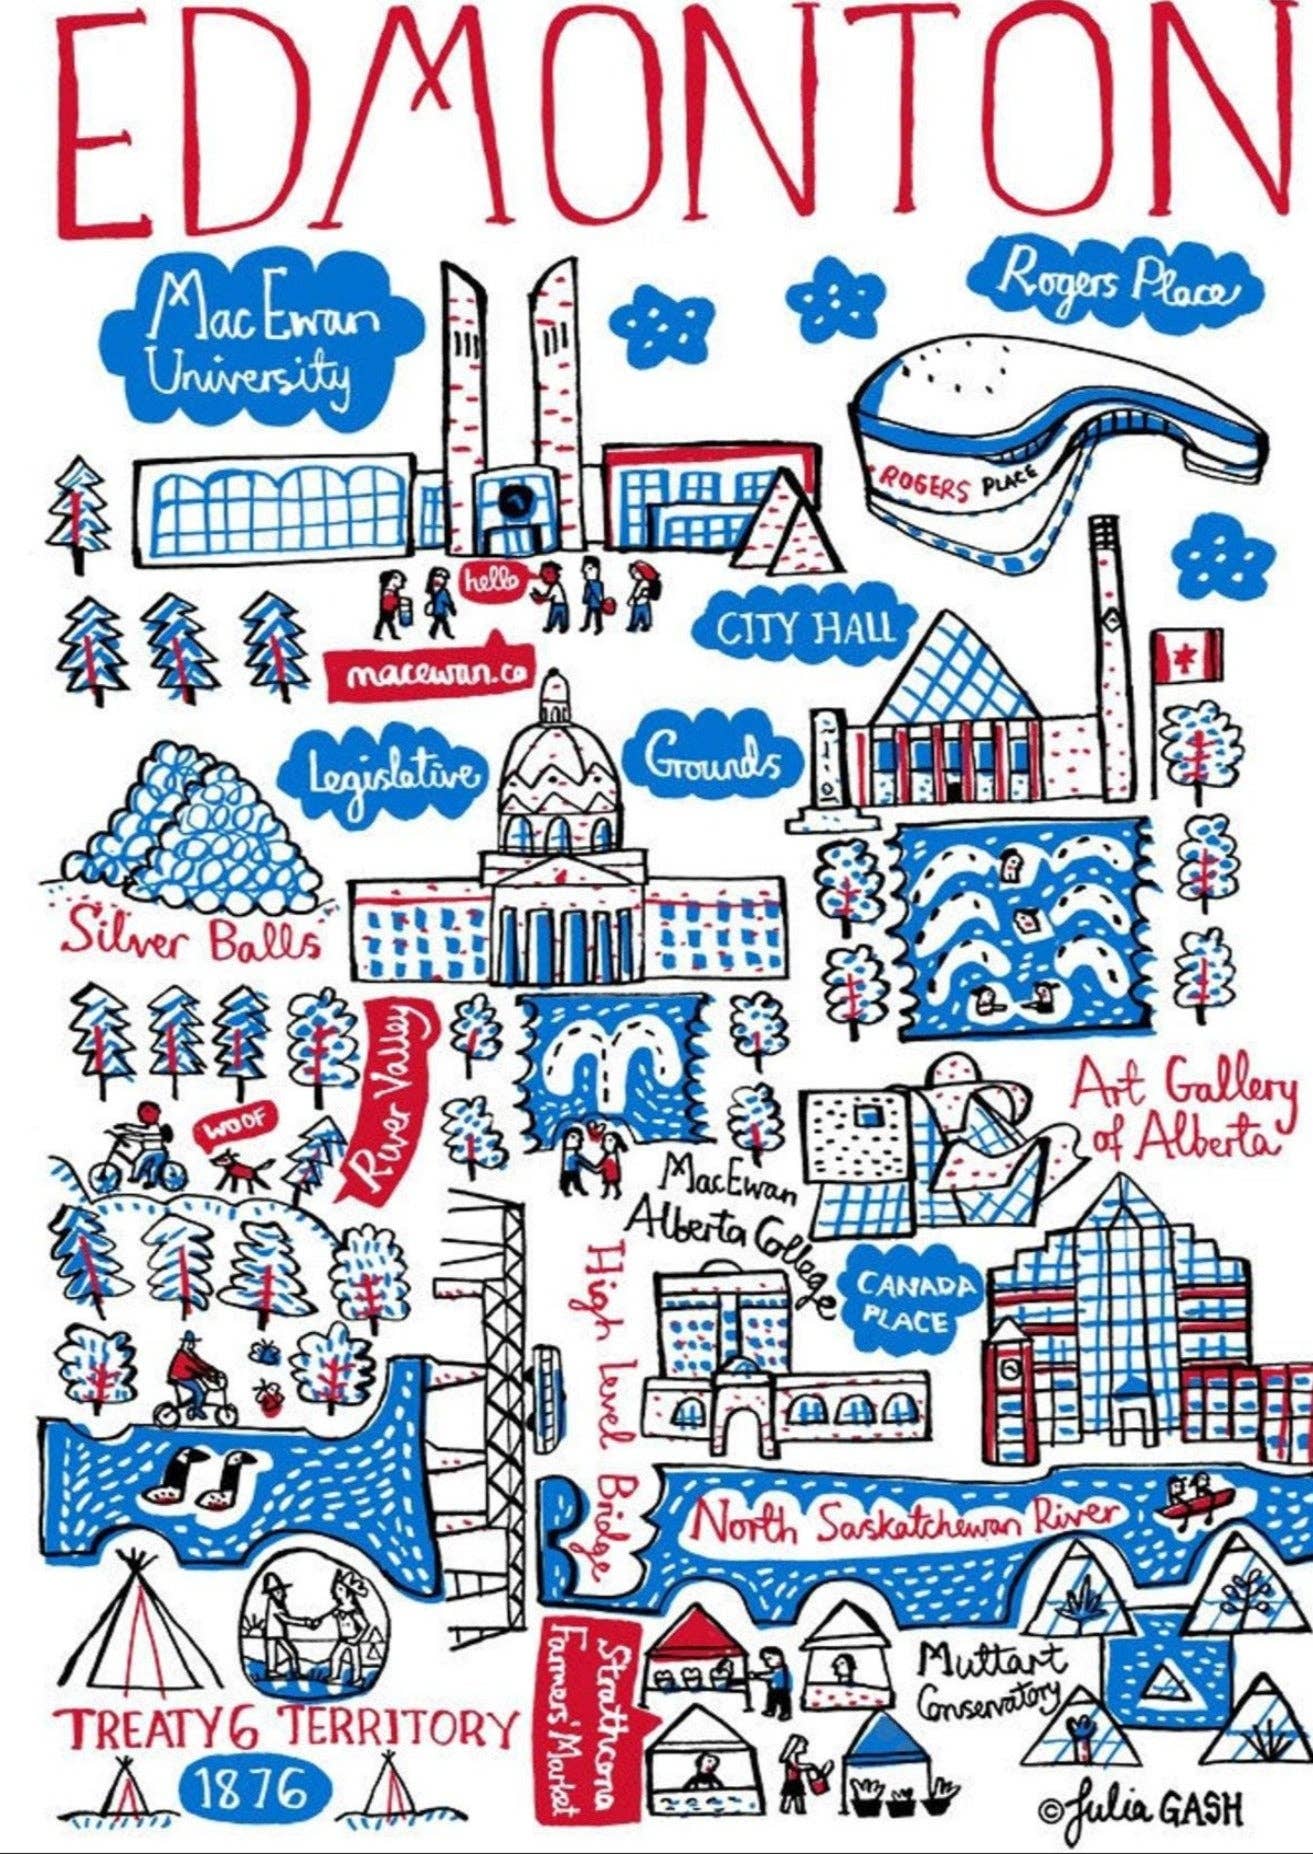 EDMONTON
MacEwan
University
Rogers Place
ROGERS PLACE
hello
CITY HALL
macewan.ca
Legislative
Grounds
Silver Balls
River Valley
WOOF
Art Gallery
of Alberta
MacEwan
Alberta College
CANADA
PLACE
High Level Bridge
North Saskatchewan River
Strathcona
Farmers' Market
Muttart
Conservatory
TREATY 6 TERRITORY
1876
© Julia GASH